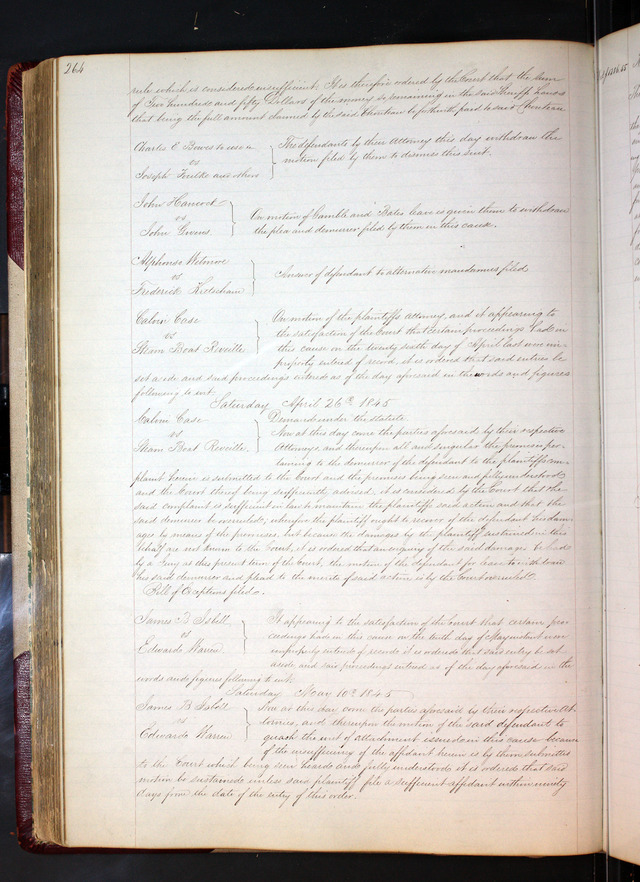 264
rule which is considered insufficient. It is therefore ordered by the Court that the sum
of Two hundred and fifty Dollars of the moneys so remaining in the said hands
that being the full amount claimed by the said Chouteau be forthwith paid to said Chouteau
Charles E Bowes to use &
vs
Joseph and others
The defendants by their Attorney this day withdraw the
motion filed by them to dismiss this suit.
John Hancock
vs
John Givens
On motion of Gamble and Bates leave is given them to withdraw
the plea and demurrer filed by them in this cause.
Alphonso Wetmore
vs
Frederick
Answer of defendant to alternative mandamus filed
Calvin Case
vs
Steam Boat Reveille
On motion of the plaintiffs Attorney, and it appearing to
the satisfaction of the Court that certain proceedings had in
this cause on the twenty sixth day of April last were im-
properly entered of record, it is ordered that said entries be
set aside and said proceedings entered as of the day aforesaid in the words and figures
following to wit.
Saturday April 26th 1845
Calvin Case
vs
Steam Boat Reveille
Demand under the statute
Now at this day come the parties aforesaid by their respective
Attorneys and thereupon all and singular the premises per-
taining to the demurrer of the defendant to the plaintiffs com-
plaint herein is submitted to the Court and the premises being seen and fully understood
and the Court thereof being sufficiently advised, it is considered by the Court that the
said complaint is sufficient in law to maintain the plaintiffs said action and that the
said demurrer be overruled, wherefore the plaintiff ought to recover of the defendant his dam-
ages by means of the premises, but because the damages by the plaintiff sustained in this
behalf are not known to the Court, it is ordered that an enquiry of the said damages be had
by a Jury at this present term of the Court, the motion of the defendant for leave to withdraw
his said demurrer and plead to the merits of said action is by the Court overruled.
Bill of Exceptions filed.
James B Isbell
vs
Edward Warren
It appearing to the satisfaction of the Court that certain pro-
ceedings had in this cause on the tenth day of May instant were
improperly entered of record it is ordered that said entry be set
aside and said proceedings entered as of the day aforesaid in the
words and figures following to wit.
Saturday May 10th 1845
James B Isbell
vs
Edward Warren
Now at this day come the parties aforesaid by their respective At-
tornies, and thereupon the motion of the said defendant to
quash the writ of attachment issued in this cause because
of the insufficiency of the affidavit herein is by them submitted
to the Court which being seen heard and fully understood it is ordered that said
motion be sustained unless said plaintiff file a sufficient affidavit within ninety
days from the date of the entry of this order.